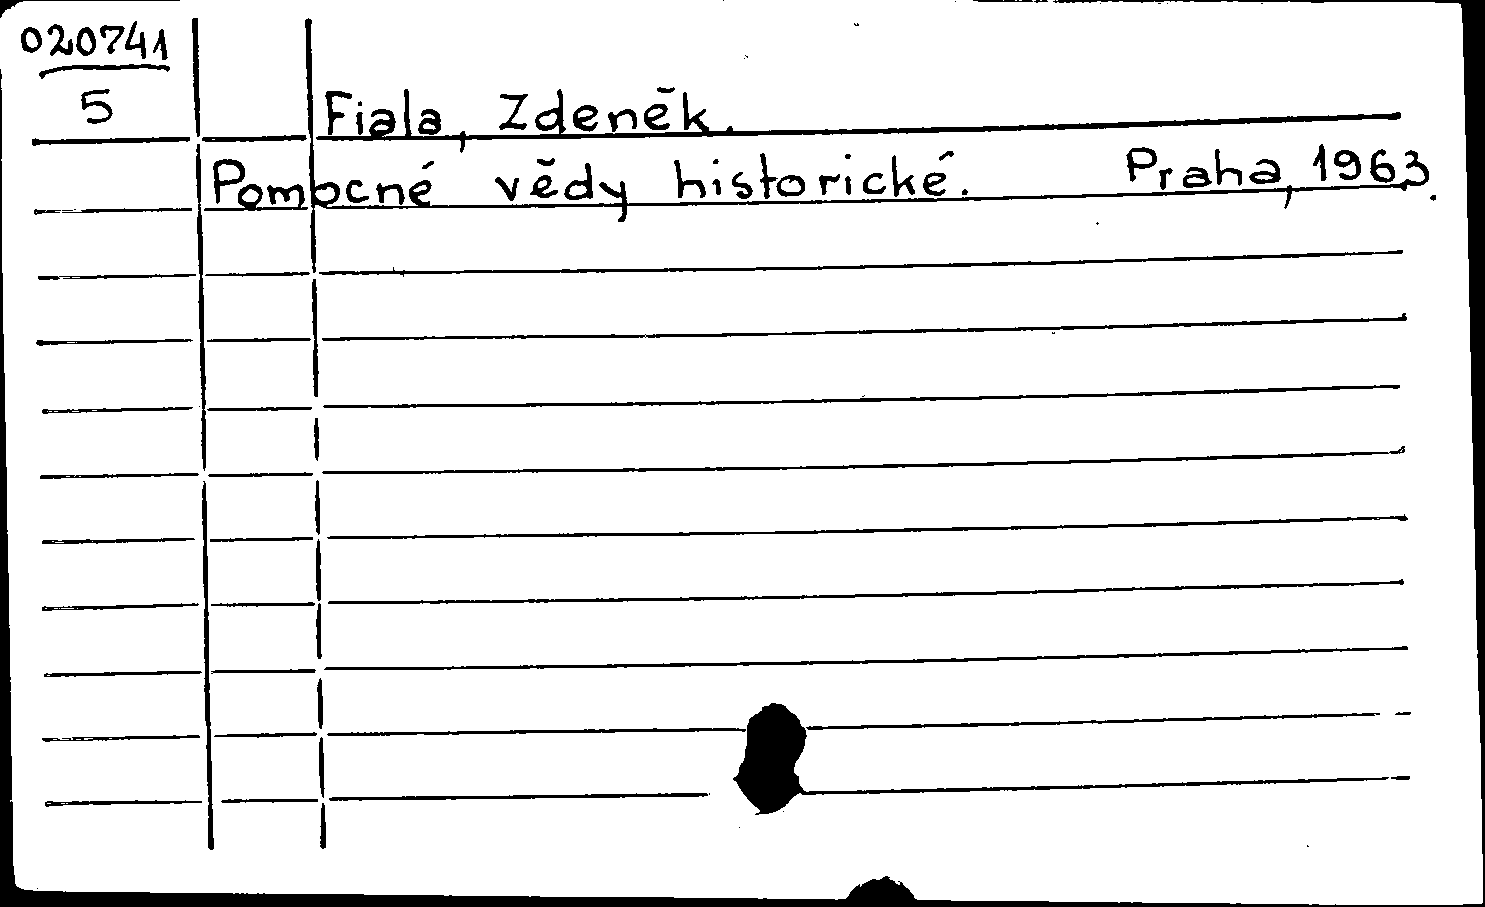 020741
5
Fiala, Zdeněk.
Pomocné vědy historické. Praha, 1963.